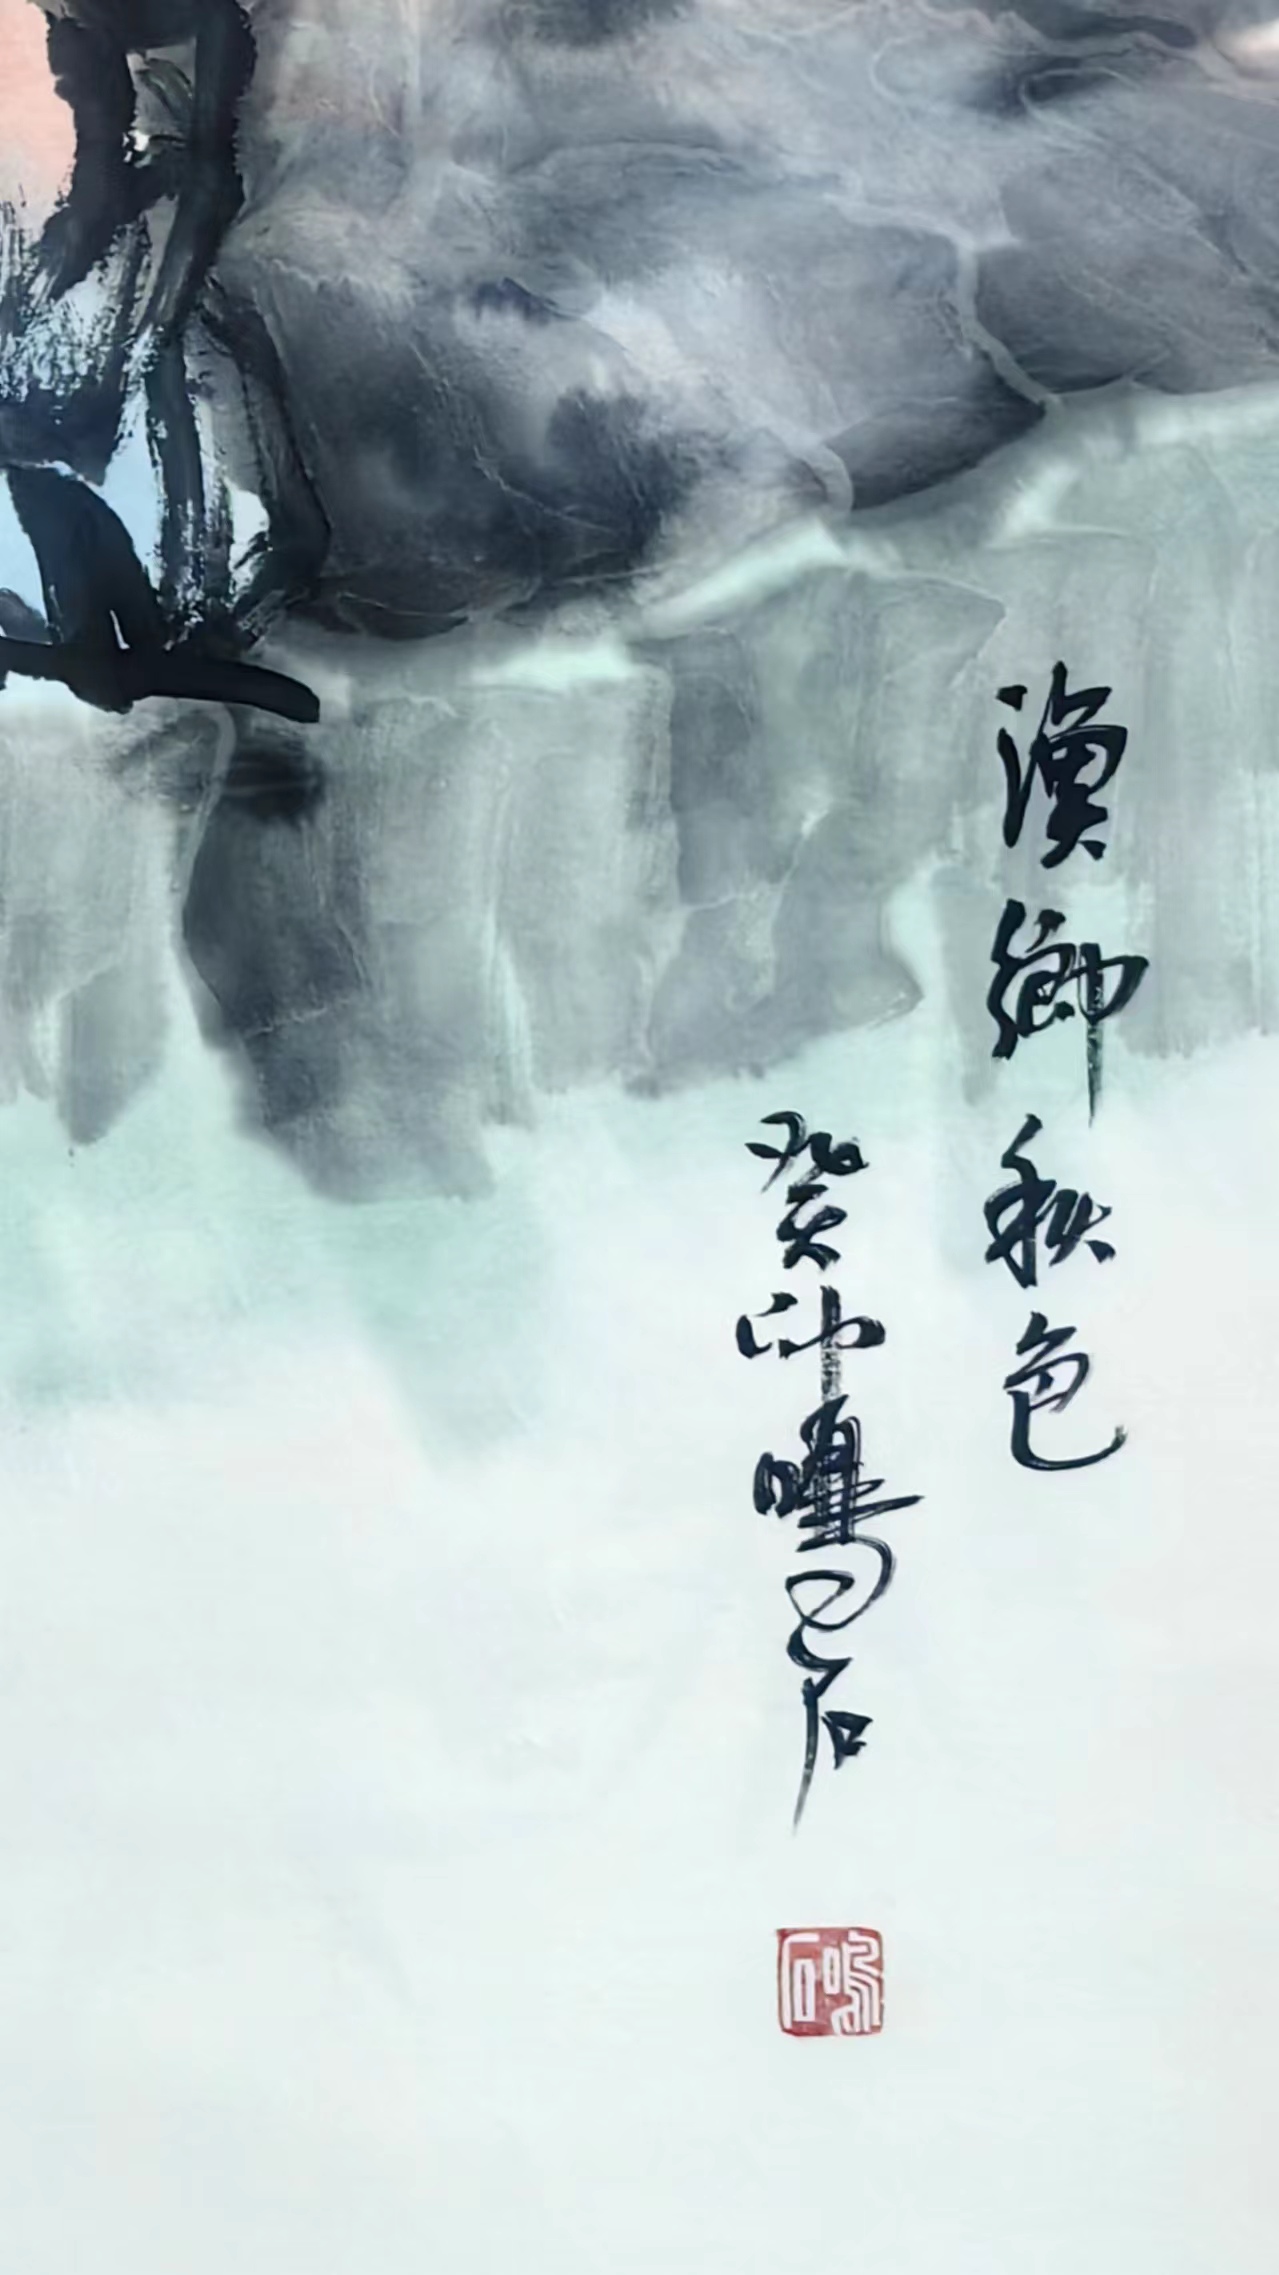 漁鄉秋色
癸卯鳴石
鳴石